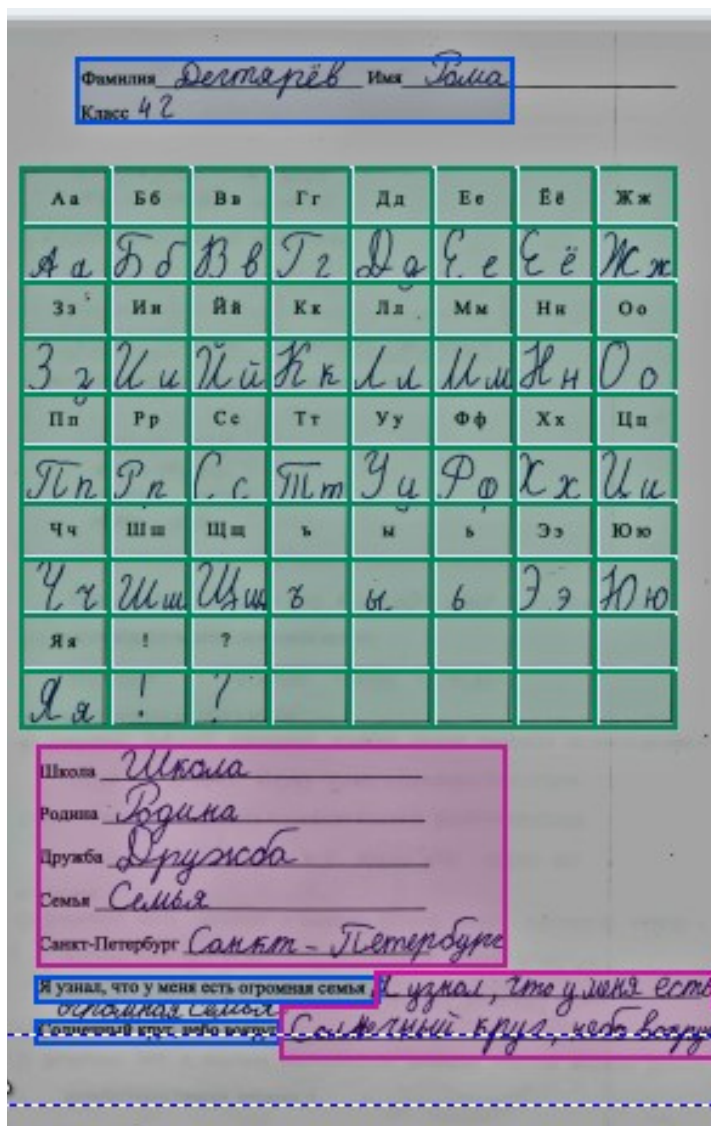 Фамилия Дегтярёв Имя Рома
Класс 4 2
Аа Бб Вв Гг Дд Ее Ёё Жж
Аа Бб Вв Гг Дд Ее Ёё Жж
Зз Ии Йй Кк Лл Мм Нн Оо
Зз Ии Йй Кк Лл Мм Нн Оо
Пп Рр Сс Тт Уу Фф Хх Цц
Пп Рр Сс Тт Уу Фф Хх Цц
Чч Шш Щщ ъ ы ь Ээ Юю
Чч Шш Щщ ъ ы ь Ээ Юю
Яя ! ?
Яя ! ?
Школа Школа
Родина Родина
Дружба Дружба
Семья Семья
Санкт-Петербург Санкт-Петербург
Я узнал, что у меня есть огромная семья Я узнал, что у меня есть
огромная семья
Солнечный круг, небо вокруг Солнечный круг, небо вокруг